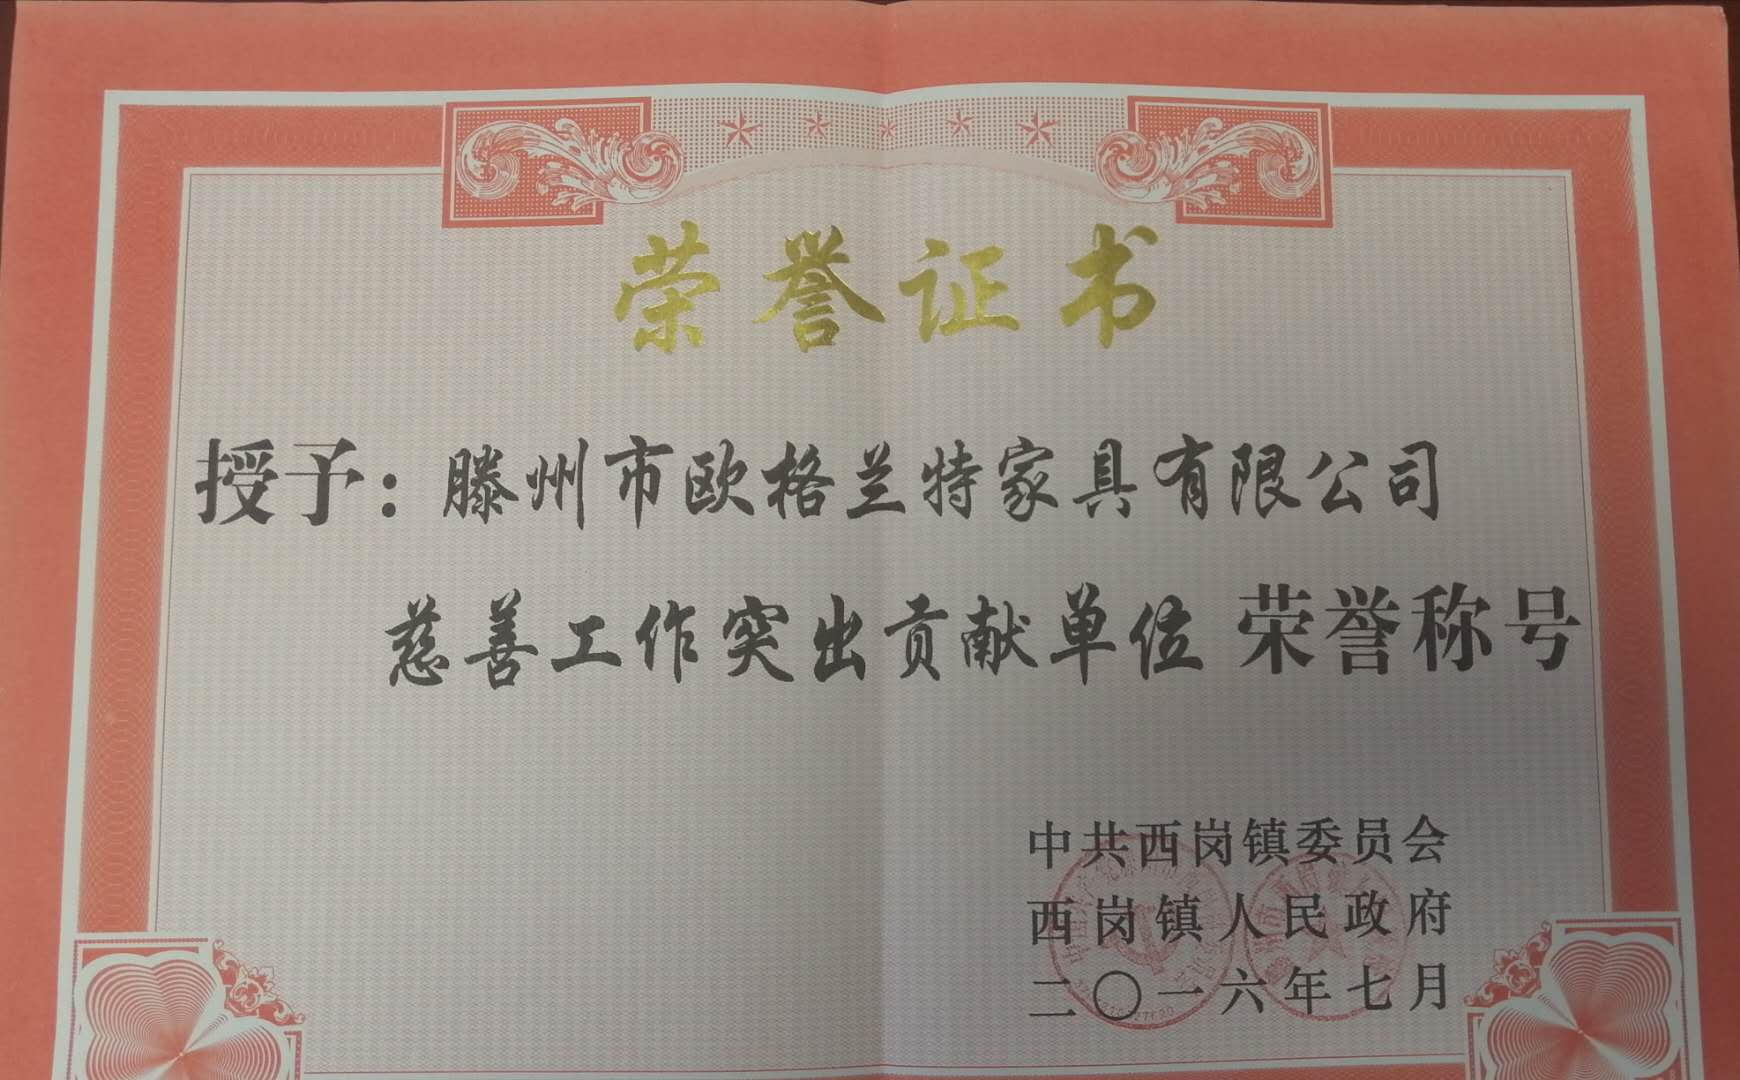 荣誉证书
授予：滕州市欧格兰特家具有限公司
慈善工作突出贡献单位 荣誉称号
中共西岗镇委员会
西岗镇人民政府
二〇一六年七月